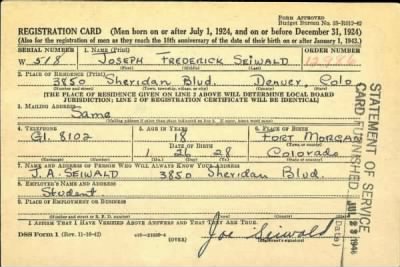 FORM APPROVED
Budget Bureau No.
REGISTRATION CARD (Men born on or after July 1, 1924, and on or before December 31, 1924)
(Also for the registration of men as they reach the 18th anniversary of the date of their birth on or after January 1, 1943.)
SERIAL NUMBER 1. NAME (Print) ORDER NUMBER
W. 518 JOSEPH FREDERICK SEIWALD 12986
(First) (Middle) (Last)
2. PLACE OF RESIDENCE (Print)
3850 Sheridan Blvd. Denver, Colo
(Number and street) (Town, township, village, or city) (County) (State)
[THE PLACE OF RESIDENCE GIVEN ON LINE 2 ABOVE WILL DETERMINE LOCAL BOARD
JURISDICTION; LINE 2 OF REGISTRATION CERTIFICATE WILL BE IDENTICAL]
3. MAILING ADDRESS
Same
4. TELEPHONE 5. AGE IN YEARS 6. PLACE OF BIRTH
Gl. 8102 18 FORT MORGAN
DATE OF BIRTH
1 26 28 Colorado
(Exchange) (Number) (Mo.) (Day) (Yr.) (State or country)
7. NAME AND ADDRESS OF PERSON WHO WILL ALWAYS KNOW YOUR ADDRESS
J. A. SEIWALD 3850 Sheridan Blvd.
8. EMPLOYER'S NAME AND ADDRESS
Student
9. PLACE OF EMPLOYMENT OR BUSINESS
(Number and street or R. F. D. number) (Town) (County) (State)
I AFFIRM THAT I HAVE VERIFIED ABOVE ANSWERS AND THAT THEY ARE TRUE.
DSS Form 1 (OVER) Joe Seiwald
STATEMENT OF SERVICE
CARD FURNISHED
(Date)
1946